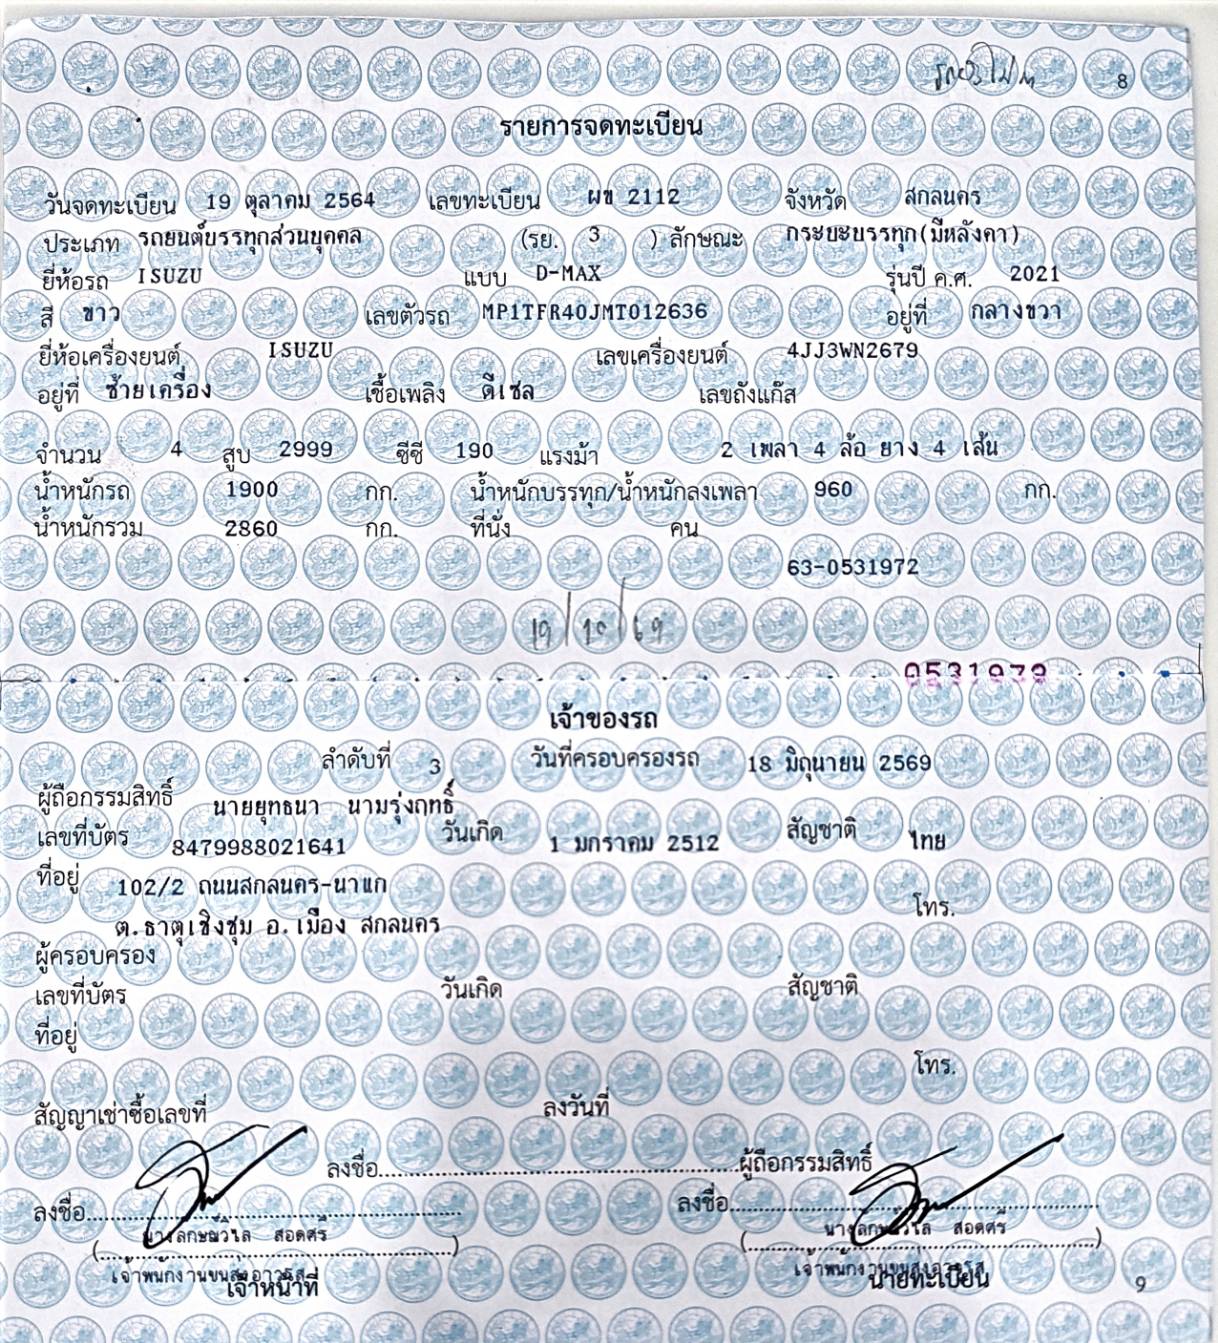 8
รายการจดทะเบียน
วันจดทะเบียน 19 ตุลาคม 2564 เลขทะเบียน ผข 2112 จังหวัด สกลนคร
ประเภท รถยนต์บรรทุกส่วนบุคคล (รย. 3 ) ลักษณะ กระบะบรรทุก(มีหลังคา)
ยี่ห้อรถ ISUZU แบบ D-MAX รุ่นปี ค.ศ. 2021
สี ขาว เลขตัวรถ MP1TFR40JMT012636 อยู่ที่ กลางขวา
ยี่ห้อเครื่องยนต์ ISUZU เลขเครื่องยนต์ 4JJ3WN2679
อยู่ที่ ซ้ายเครื่อง เชื้อเพลิง ดีเซล เลขถังแก๊ส
จำนวน 4 สูบ 2999 ซีซี 190 แรงม้า 2 เพลา 4 ล้อ ยาง 4 เส้น
น้ำหนักรถ 1900 กก. น้ำหนักบรรทุก/น้ำหนักลงเพลา 960 กก.
น้ำหนักรวม 2860 กก. ที่นั่ง คน
63-0531972
19/10/69
0531972
เจ้าของรถ
ลำดับที่ 3 วันที่ครอบครองรถ 18 มิถุนายน 2569
ผู้ถือกรรมสิทธิ์ นายยุทธนา นามรุ่งฤทธิ์
เลขที่บัตร 8479988021641 วันเกิด 1 มกราคม 2512 สัญชาติ ไทย
ที่อยู่ 102/2 ถนนสกลนคร-นาแก
โทร.
ต.ธาตุเชิงชุม อ.เมือง สกลนคร
ผู้ครอบครอง
เลขที่บัตร วันเกิด สัญชาติ
ที่อยู่
โทร.
สัญญาเช่าซื้อเลขที่ ลงวันที่
ลงชื่อ ผู้ถือกรรมสิทธิ์
ลงชื่อ ลงชื่อ
(นางลักษณ์วิไล สอดศรี) (นางลักษณ์วิไล สอดศรี)
เจ้าพนักงานขนส่งอาวุโส เจ้าพนักงานขนส่งอาวุโส
เจ้าหน้าที่ นายทะเบียน 9